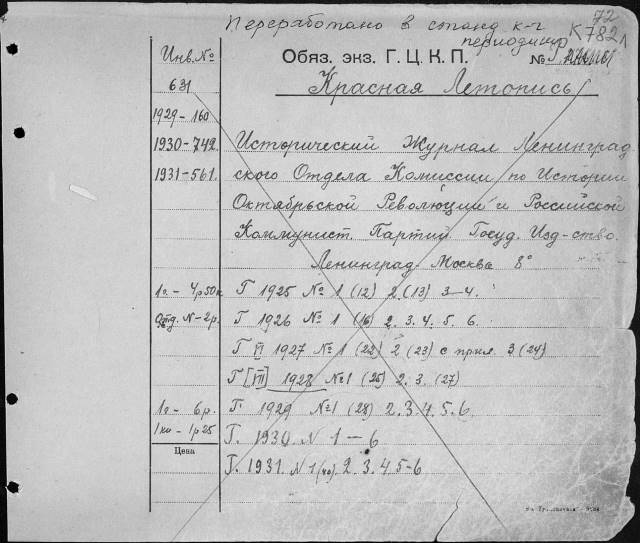 Переработано в станд. к-г
периодику
72
К782л
Инв. №
Обяз. экз. Г. Ц. К. П. №
631
Красная Летопись
1929-160
1930-742. Исторический Журнал Ленинград
1931-561. ского Отдела Комиссии по Истории
Октябрьской Революции и Российской
Коммунист. Партии. Госуд. Изд-ство.
Ленинград-Москва 8°
1а - 4р50к Г 1925 № 1 (12) 2 (13) 3-4.
Отд. N-2р. Г 1926 № 1 (16) 2. 3. 4. 5. 6.
Г VI 1927 № 1 (22) 2 (23) с прил. 3 (24)
Г [VII] 1928 №1 (25) 2. 3. (27)
1а - 6р. Г. 1929 №1 (28) 2. 3. 4. 5. 6.
1кн - 1р25 Г. 1930. N 1 - 6
Цена
Г. 1931. N 1 (40). 2. 3. 4. 5-6